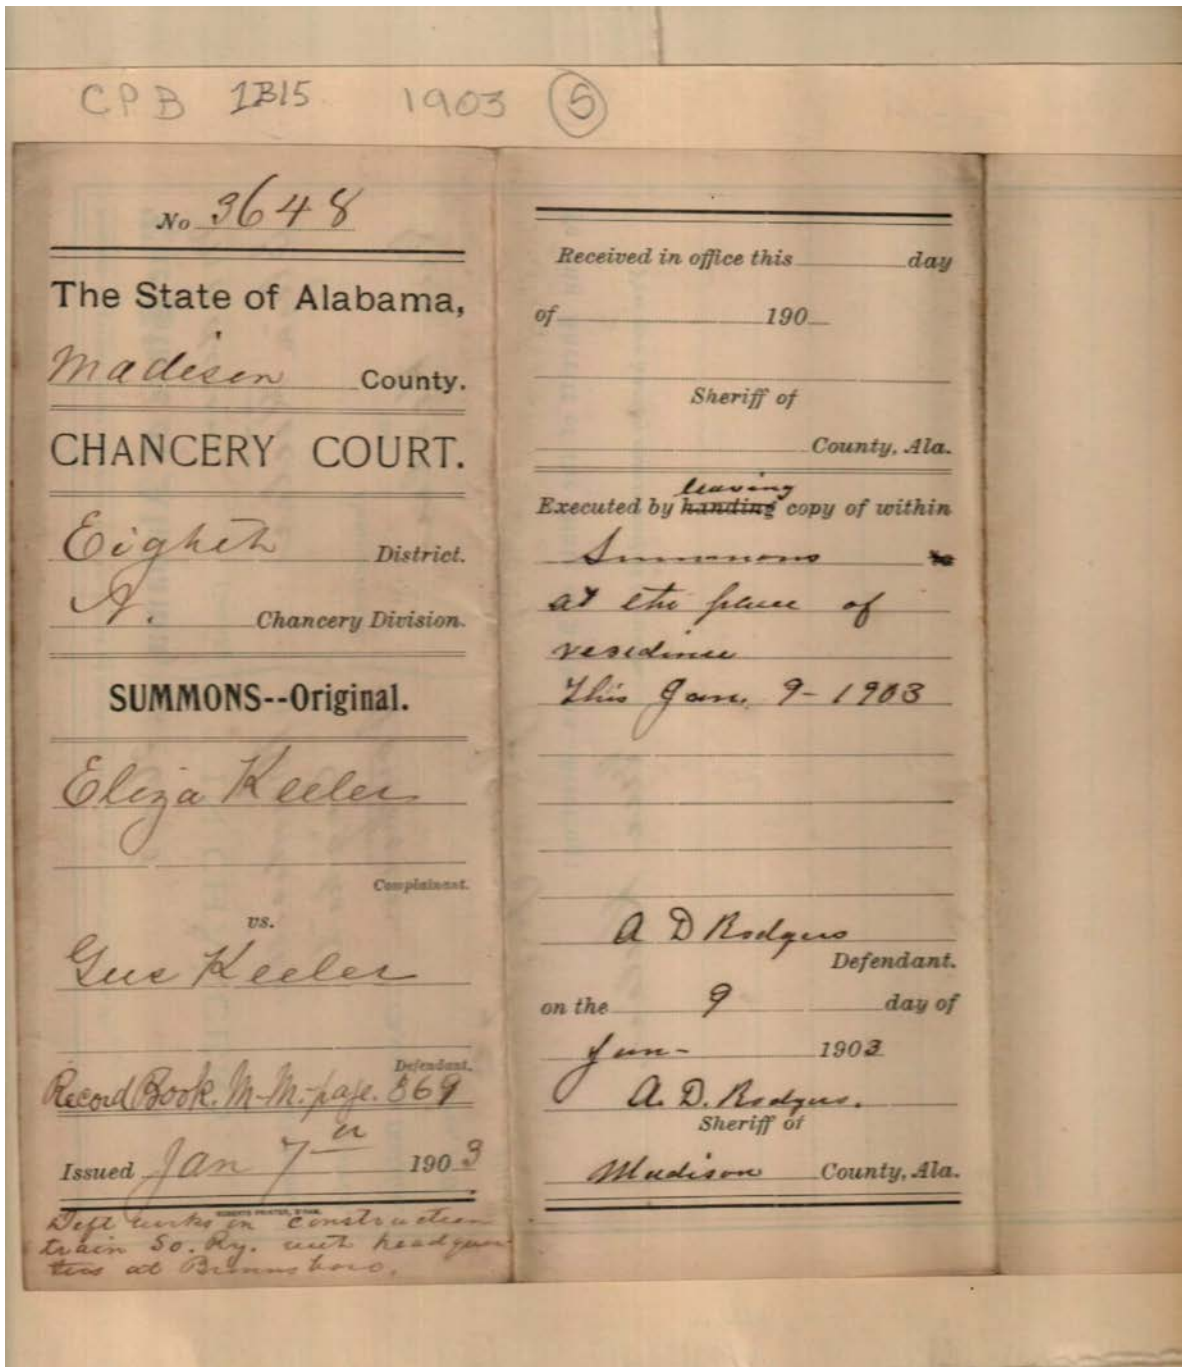 CPB 1B15 1903 5
No 3648
The State of Alabama,
Madison County.
CHANCERY COURT.
Eighth District.
N. Chancery Division.
SUMMONS--Original.
Eliza Keeler
Complainant.
vs.
Gus Keeler
Defendant.
Record Book. M-M-page. 569
Issued Jan 7th 1903
Deft works in construction
train So. Ry. with headquar
ters at Brownsboro.
Received in office this day
of 190
Sheriff of
County, Ala.
leaving
Executed by handing copy of within
Summons to
at the place of
residence
This Jan. 9 - 1903
A D Rodgers
Defendant.
on the 9 day of
Jan - 1903
A. D. Rodgers.
Sheriff of
Madison County, Ala.